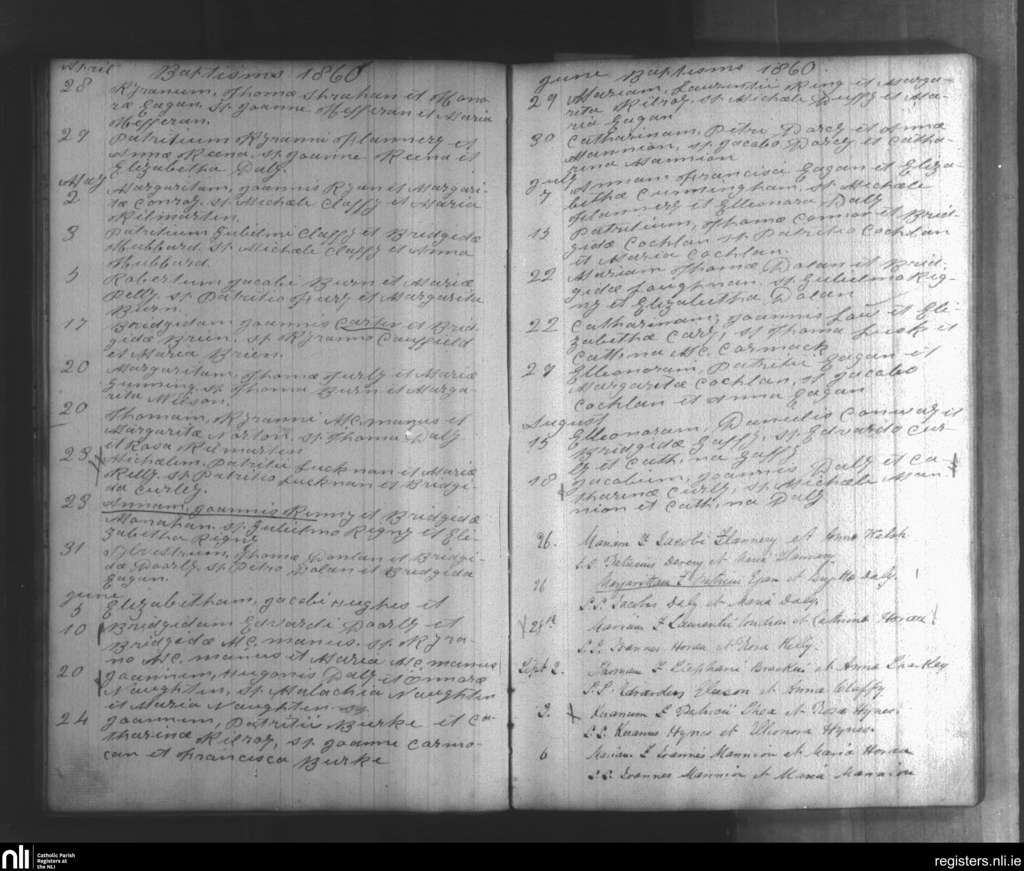 April Baptisms 1860
28 Kyranum, Thomæ Shrahan et Hono-
ræ Eagan, Sp. Joanne Hefferan et Maria
Hefferan.
29 Patritium Kyranni Flannery et
Anna Keena, Sp. Joanne Keena et
Elizabetha Daly.
May
2 Margaritam, Joannis Ryan et Margari-
tæ Conroy, Sp. Michæle Claffy et Maria
Kilmarten.
3 Patritium Gulielmi Claffy et Bridgidæ
Hubbard. Sp. Michæle Claffy et Anna
Hubbard.
5 Robertum Jacobi Burn et Mariæ
Pelly, Sp. Patritio et Margarita
Burn.
17 Bridgidam Joannis Carter et Brid-
gidæ Brien. Sp. Kyranno Caulfield
et Maria Brien.
20 Margaritam Thomæ Turly et Mariæ
Gunning, Sp. Thoma Burn et Marga-
rita Nilson.
20 Thomam, Kyranni Mc. manus et
Margaritæ Norton, Sp. Thoma Daly
et Rosa Kilmarten
23 Michælem, Patritii Lucknan et Mariæ
Kelly. Sp. Patritio Lucknan et Bridgi-
da Curley.
23 Annam, Joannis Kenny et Bridgidæ
Monahan. Sp. Gulielmo Rigny et Eli-
zabetha Rigny
31 Thomæ Donlan et Bridgi-
dæ Doorly. Sp. Petro Dolan et Bridgida
Eagan.
June
5 Elizabetham, Jacobi Hughes et
10 Bridgidam Edvardi Doorly et
Bridgidæ Mc. manus. Sp. Kyra-
no Mc. manus et Maria Mc. manus
20 Joannam, Hugonis Daly et Onnoræ
Naughten, Sp. Malachia Naughten
et Maria Naughten.
24 Joannem, Patritii Burke et Ca-
tharinæ Kilroy, Sp. Joanne Carmo-
can et Francisca Burke
June Baptisms 1860.
29 Mariam, Laurentii King et Marga-
ritæ Kilroy. Sp. Michæle Duffy et Ma-
ria Eagan
30 Catharinam, Petri Darcy et Annæ
Mannion, Sp. Jacobo Darcy et Catha-
rina Mannion
July
7 Annam Francisci Eagan et Eliza-
betha Cunningham, Sp. Michæle
Flannery et Elleonora Daly
15 Patritium, Thomæ Connor et Brid-
gidæ Cochlan Sp. Patritio Cochlan
et Maria Cochlan.
22 Mariam Thomæ Dolan et Brid-
gidæ Loughnan. Sp. Gulielmo Rig-
ny et Elizabetha Dolan
22 Catharinam, Joannis et Eli-
zabethæ Cary, Sp. Thoma Lusk et
Cath, na Mc. Cormack
27 Elleonoram, Patritii Eagan et
Margaritæ Cochlan, Sp. Jacobo
Cochlan et Anna Eagan
August
15 Elleonoram, Danielis Conway et
Bridgidæ Gaffy, Sp. Edvardo Cur-
ly et Cath, na Gaffy
18 Jacobum, Joannis Daly et Ca-
tharinæ Curly, Sp. Michæle Man-
nion et Cath, na Daly
26. Mariam F. Jacobi Flannery et Anna Walsh
S.S. Patricius Devery et Maria Flannery
26 Margarittam F. Patricii Egan et Daly.
S.S. Jacobus Daly et Maria Daly.
29th Mariam F. Laurentii et Catherina Horan
S.S. Joannes Horan et Rosa Kelly.
Sept 2. Thomam F. Stephani Bracken et Anna
S.S. Gleson et Anna Claffy
3. Kieranum F. Patricii Shea et Rosa Hynes
S.S. Kieranus Hynes et Elleonora Hynes.
6 Mariam F. Joannes Mannion et Maria Horan
S.S. Joannes Mannion et Maria Mannion
nli Catholic Parish
Registers at
the NLI
registers.nli.ie